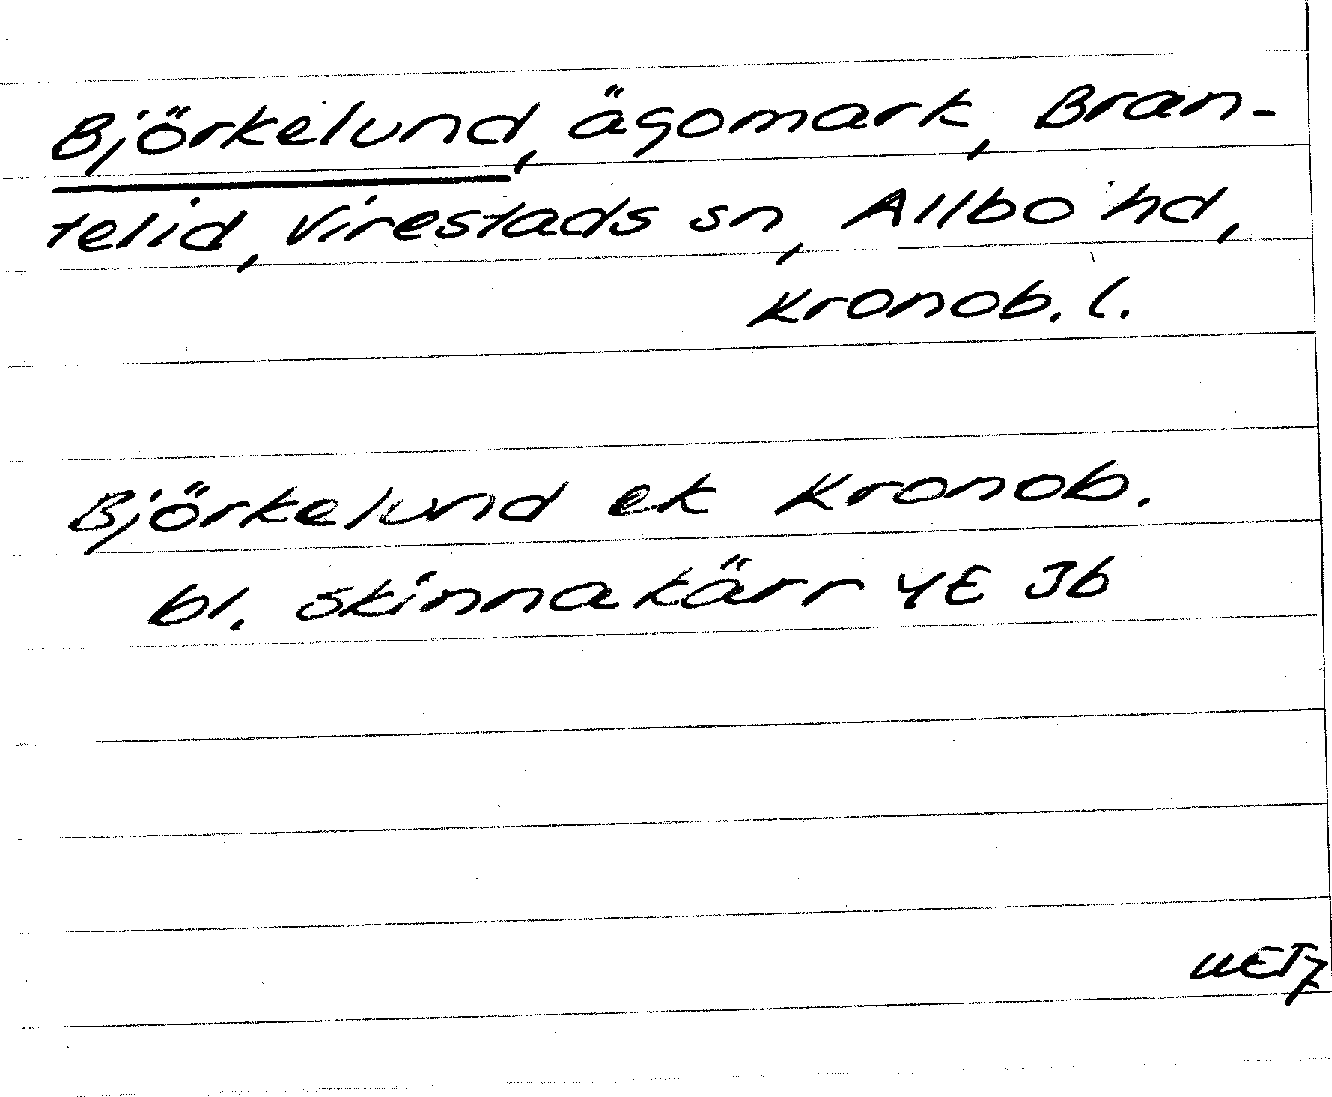 Björkelund, ägomark, Bran-
telid, Virestads sn, Allbo hd,
Kronob. l.
Björkelund ek Kronob.
bl. Skinnakärr 4E 3b